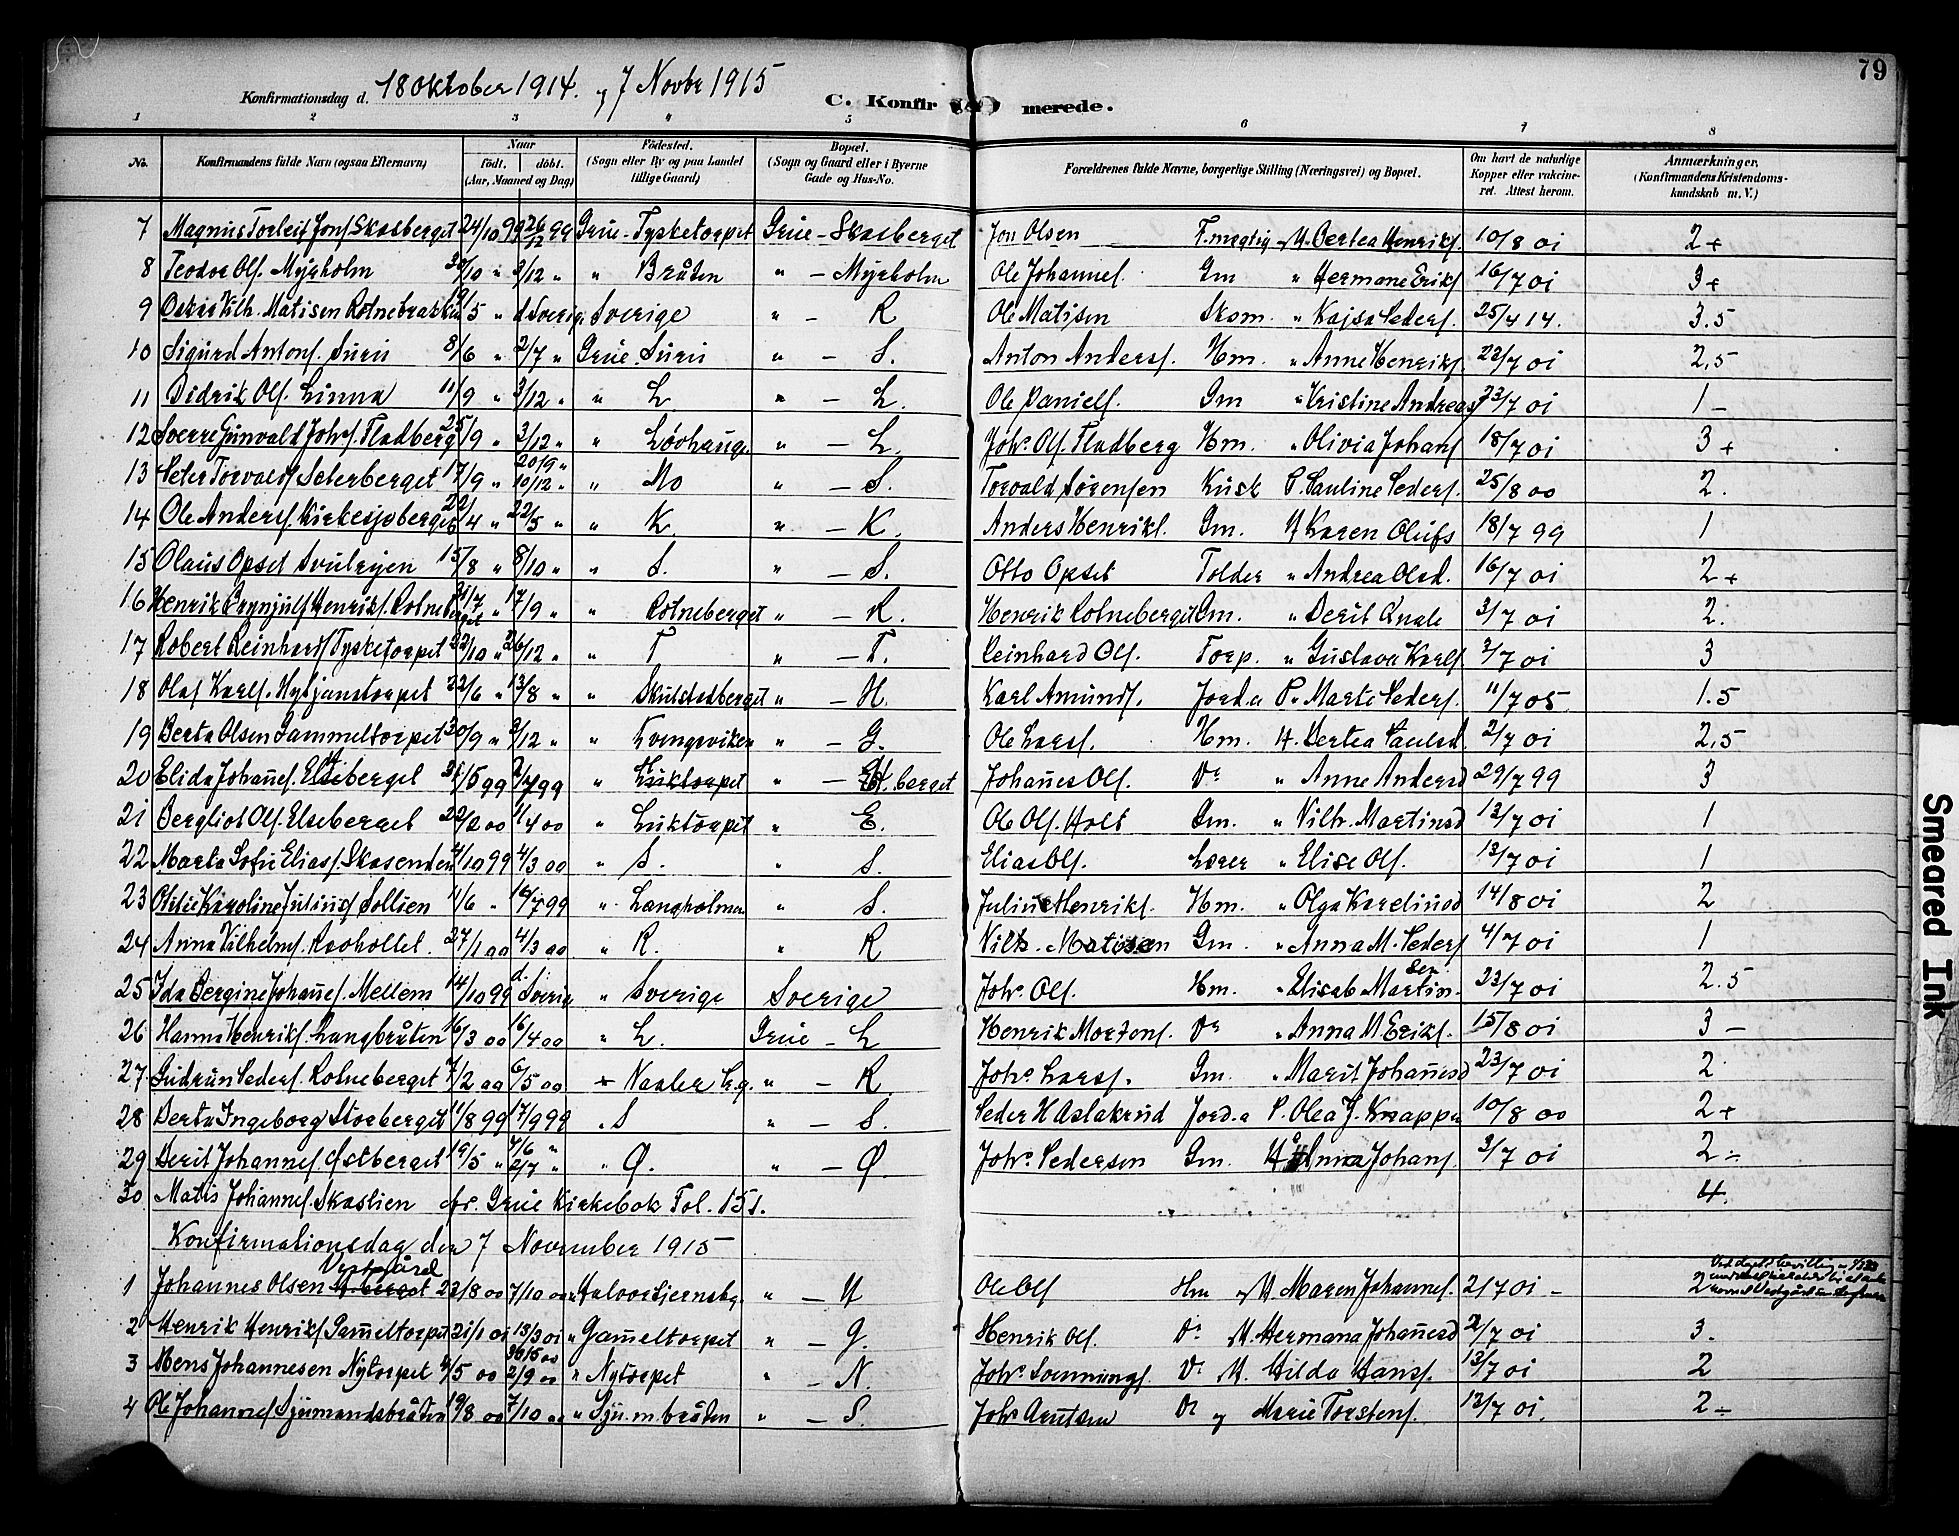 79
Konfirmationsdag d. 18 Oktober 1914. og 7 Novbr 1915 C. Konfirmerede.
1 2 3 4 5 6 7 8
No. Konfirmandens fulde Navn (ogsaa Efternavn) Naar født. døbt. (Aar, Maaned og Dag) Fødested. (Sogn eller By og paa Landet tillige Gaard) Bopæl. (Sogn og Gaard eller i Byerne Gade og Hus-No. Forældrenes fulde Navne, borgerlige Stilling (Næringsvei) og Bopæl. Om havt de naturlige Kopper eller vakcineret. Attest herom. Anmærkninger. (Konfirmandens Kristendomskundskab m. V.)
7 Magnus Torleif Jonss Skasberget 24/10 99 26/12 99 Grue - Tysketorpet Grue - Skasberget Jon Olsen F.mægtig M. Bertea Henriks. 10/8 01 2+
8 Teodor Ols. Myrholm /10 " 3/12 " " Bråten " - Myrholm Ole Johannes. Gm " Hermane Eriks 16/7 01 3+
9 Oskar Vilh. Matisen Rotnebrakken /5 " d Sverig. Sverige " - R Ole Matisen Skom. " Kajsa Peders. 25/4 14. 3.5
10 Sigurd Antons. Suru 8/6 " 2/7 " Grue. Suru " - S. Anton Anders. Hm. " Anne Henriks. 22/7 01 2,5
11 Didrik Ols. Linna 11/9 " 3/12 " " L. " - L. Ole Daniels. Gm " Kristine Andreas 23/7 01 1 -
12 Sverre Gunvald Johs. Fladberg 25/9 " 3/12 " " Løvhauge. " - L. Johs. Ols. Fladberg Hm. " Olivia Johans 18/7 01 3+
13 Peter Torvalds Seterberget 17/9 " 20/9 " 10/12 " " Mo " - S. Torvald Sørensen Kusk P. Pauline Peders. 25/8 00 2.
14 Ole Anders. Kirkesjøberget 22/4 " 22/5 " " K. " - K. Anders Henriks. Gm. M Karen Olufs 18/7 99 1
15 Olaus Opset Svulryen 15/8 " 8/10 " " S. " - S. Otto Opset Tolder " Andrea Olsd. 16/7 01 2+
16 Henrik Brynjulf Henriks. Rotneberget 21/7 " 17/9 " " Rotneberget " - R. Henrik Rotneberget Gm. " Berit Qvale 3/7 01 2.
17 Robert Reinhards Tysketorpet 22/10 " 26/12 " " T " - T. Reinhard Ols. Torp. " Gustava Karls. 2/7 01 3
18 Olaf Karls. Nytjanstorpet 22/6 " 13/8 " " Skulstadberget " - H. Karl Amunds. Jord.a P. Marte Peders. 11/7 05 1.5
19 Berta Olsen Gammeltorpet 30/9 " 3/12 " " Tvengsviken " - G. Ole Larss. Hm. M. Bertea Paulsd. 2/7 01 2,5
20 Elida Johañes. Elseberget 31/5 99 2/7 99 " Luktorpet " - berget Johañes Ols. Do " Anne Andersd 29/7 99 3
21 Bergliot Ols. Elseberget 22/2 00 1/4 00 " Luktorpet " E. Ole Ols. Holt Gm. " Vilh. Martinsd 13/7 01 1
22 Marta Sofie Elias. Skasenden 4/10 99 4/3 00 " S. " S. Elias Ols. Lærer " Elise Ols. 13/7 01 1
23 Otilie Karoline Julius Sollien 11/6 " 16/7 99 " Langholmen " S. Julius Henriks. Hm. " Olga Kareliusd 14/8 01 2
24 Anna Vilhelms. Raaholtet. 27/1 00 4/3 00 " R. " R Vilh. Matisen Gm. " Anna M. Peders 4/7 01 1
25 Ida Bergine Johañes. Mellem 14/10 99 d. Sverig " Sverige Sverige Johs. Ols. Hm. " Elisab Martinsen 23/7 01 2.5
26 Hanna Henriks. Langbråten 16/3 00 16/4 00 " L. Grue - L Henrik Mortens. Do " Anna M. Eriks. 15/8 01 3 -
27 Gudrun Peders. Rotneberget 7/2 00 6/5 00 + Nasler b.g. " - R Johs. Larss. Gm. " Marit Johañesd 23/7 01 2
28 Berta Ingeborg Storberget 11/8 99 17/9 99 " S " - S. Peder H Aslakrud Jord.a P. Olea J. Knappen 10/8 00 2+
29 Berit Johannes. Østberget 19/5 " 4/6 " 2/7 " " Ø. " - Ø Johs. Pedersen Gm. M Anna Johans. 3/7 01 2 -
30 Matis Johannes. Skaslien cfr. Grue Kirkebok Fol. 151. 4.
Konfirmationsdag den 7 November 1915
Vestgård
1 Johannes Olsen 23/8 00 7/10 00 " Halvorstjernsbg. " - Ole Ols Hm og M. Maren Johannes. 2/7 01 - 2
2 Henrik Henriks Gameltorpet 21/1 01 13/3 01 " Gam̃eltorpet " - G. Henrik Ols. Do M. Hermana Johañesd 2/7 01 3.
3 Mens Johannesen Nytorpet 4/5 00 30/5 00 2/9 00 " Nytorpet " - N. Johs. Sønnungs. Do M. Hilda Hans. 13/7 01 2
4 Ole Johannes Sjumandsbråten 19/8 00 7/10 00 " Sju.m.bråten " - S. Johs. Arntsen Do og Marie Torstens. 13/7 01. 2 -
Smeared Ink